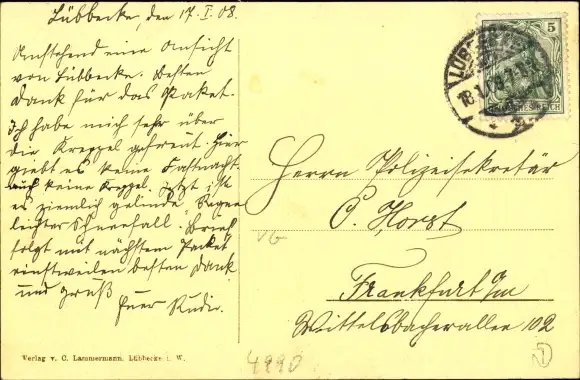 Lübbecke, den 17. I. 08.
Umstehend eine Ansicht
von Lübbecke. Besten
Dank für das Paket.
Ich habe mich sehr über
die Kreppel gefreut. Hier
giebt es keine Fastnacht
auch keine Kreppel. Jetzt ist
es ziemlich gelinde, Regen
leichter Schneefall. Brief
folgt mit nächstem Packet
einstweilen besten Dank
und Gruß
Euer Rudi.
5
LÜBBECKE
18.1.08.7-8
DEUTSCHES REICH
Herrn Polizeisekretär
C. Horst
Frankfurt a/m
Wittelsbacherallee 102
Vb
Verlag v. C. Lammermann, Lübbecke i. W.
4990